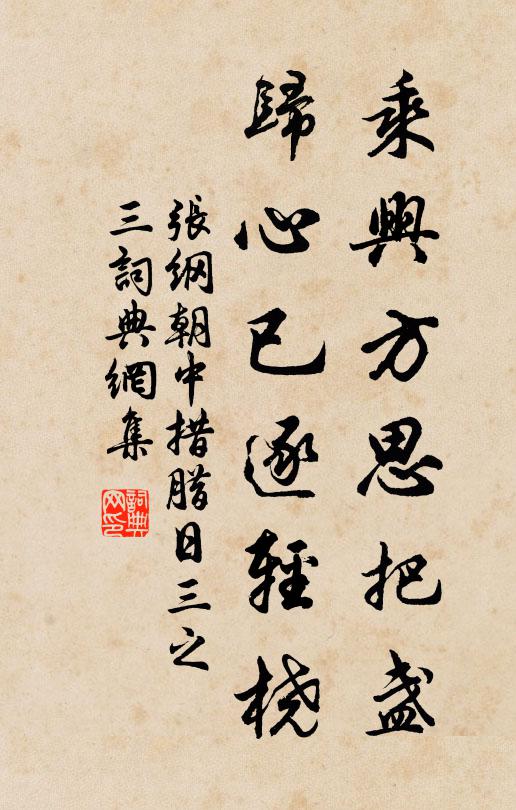 乘興方思把盞
歸心已逐輕橈
張綱朝中措臘日三之
三詞典網集
詞典
网印